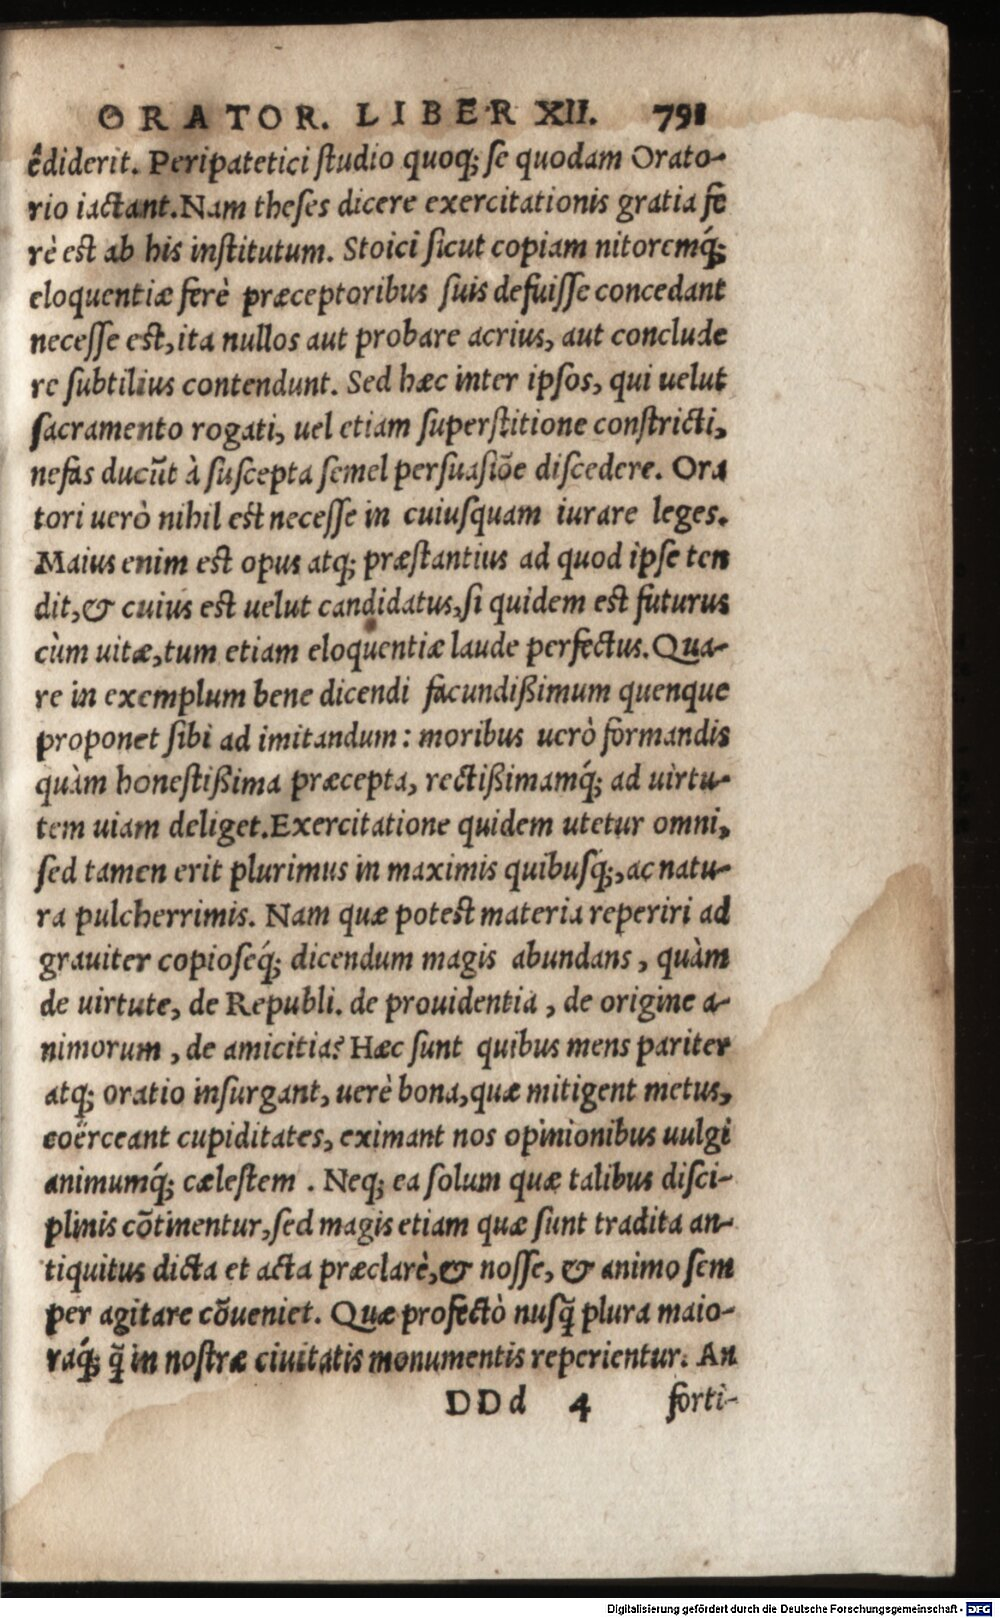 ORATOR. LIBER XII. 791
êdiderit. Peripatetici ſtudio quoq; ſe quodam Orato-
rio iactant. Nam theſes dicere exercitationis gratia fe
rè est ab his inſtitutum. Stoici ſicut copiam nitoremq́;
eloquentiæ ferè præceptoribus ſuis defuiſſe concedant
neceſſe est, ita nullos aut probare acrius, aut conclude
re ſubtilius contendunt. Sed hæc inter ipſos, qui uelut
ſacramento rogati, uel etiam ſuperſtitione conſtricti,
nefas ducũt à ſuſcepta ſemel perſuaſiõe diſcedere. Ora
tori uerò nihil est neceſſe in cuiuſquam iurare leges.
Maius enim est opus atq; præſtantius ad quod ipſe ten
dit, & cuius est uelut candidatus, ſi quidem est futurus
cùm uitæ, tum etiam eloquentiæ laude perfectus. Qua-
re in exemplum bene dicendi facundißimum quenque
proponet ſibi ad imitandum: moribus uerò formandis
quàm honeſtißima præcepta, rectißimamq́; ad uirtu-
tem uiam deliget. Exercitatione quidem utetur omni,
ſed tamen erit plurimus in maximis quibuſq;, ac natu-
ra pulcherrimis. Nam quæ potest materia reperiri ad
grauiter copioſeq́; dicendum magis abundans, quàm
de uirtute, de Republi. de prouidentia, de origine a-
nimorum, de amicitia? Hæc ſunt quibus mens pariter
atq; oratio inſurgant, uerè bona, quæ mitigent metus,
coërceant cupiditates, eximant nos opinionibus uulgi
animumq́; cæleſtem. Neq; ea ſolum quæ talibus diſci-
plinis cõtinentur, ſed magis etiam quæ ſunt tradita an-
tiquitus dicta et acta præclarè, & noſſe, & animo ſem
per agitare cõueniet. Quæ profectò nuſq̃ plura maio-
raq́; q̃ in noſtræ ciuitatis monumentis reperientur. An
DDd 4 forti-
Digitalisierung gefördert durch die Deutsche Forschungsgemeinschaft - DFG